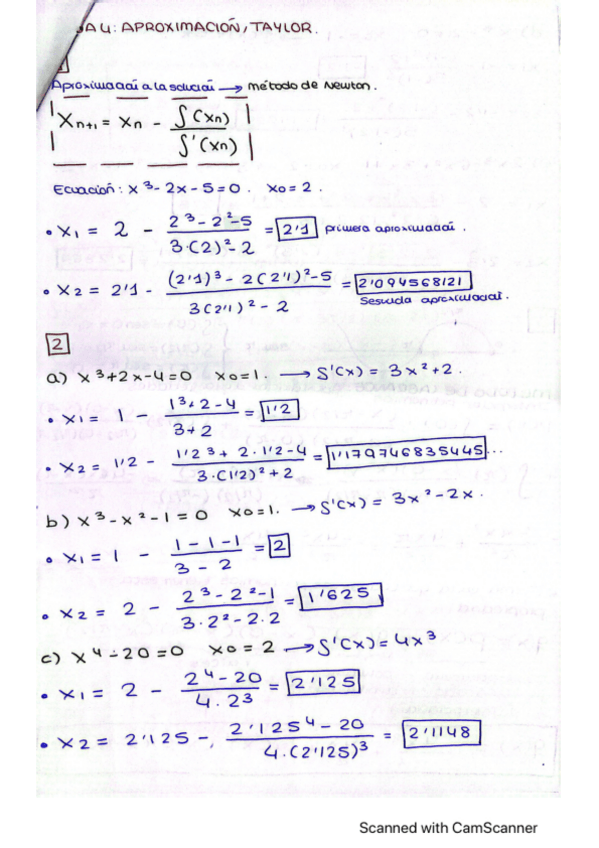 JA 4: APROXIMACIÓN, TAYLOR.
Aproximació a la solució → método de Newton.
Xn+1 = Xn - f(xn) / f'(xn)
Ecuación: x³-2x-5=0. X0=2.
• X1 = 2 - (2³-2²-5) / (3·(2)²-2) = 2'1 primera aproximació.
• X2 = 2'1 - ((2'1)³-2(2'1)²-5) / (3(2'1)²-2) = 2'094568121
Segunda aproximació.
2
a) x³+2x-4=0 X0=1. → f'(x) = 3x²+2.
• X1 = 1 - (1³+2-4) / (3+2) = 1'2
• X2 = 1'2 - (1'2³+2·1'2-4) / (3·(1'2)²+2) = 1'179746835445...
b) x³-x²-1=0 X0=1. → f'(x) = 3x²-2x.
• X1 = 1 - (1-1-1) / (3-2) = 2
• X2 = 2 - (2³-2²-1) / (3·2²-2·2) = 1'625
c) x⁴-20=0 X0=2 → f'(x)=4x³
• X1 = 2 - (2⁴-20) / (4·2³) = 2'125
• X2 = 2'125 - (2'125⁴-20) / (4·(2'125)³) = 2'1148
Scanned with CamScanner